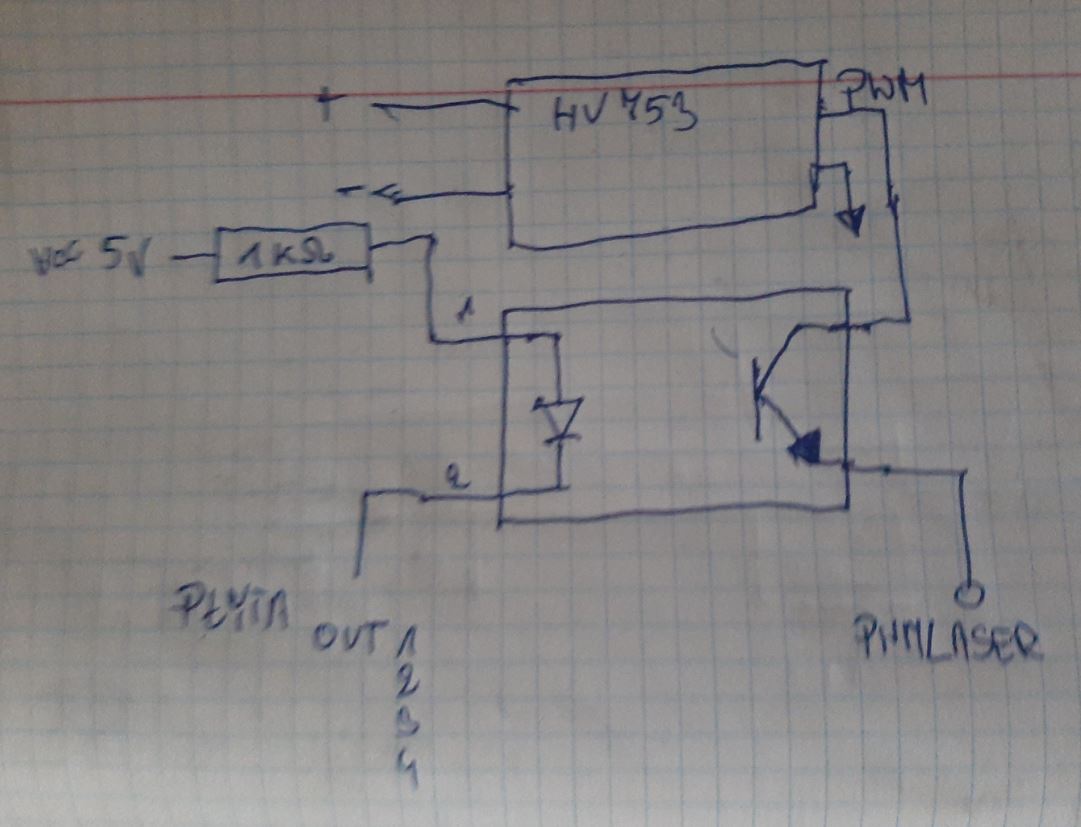 +
HV 753
PWM
-
Vcc 5V
1KΩ
1
2
PŁYTA
OUT 1
2
3
4
PWMLASER